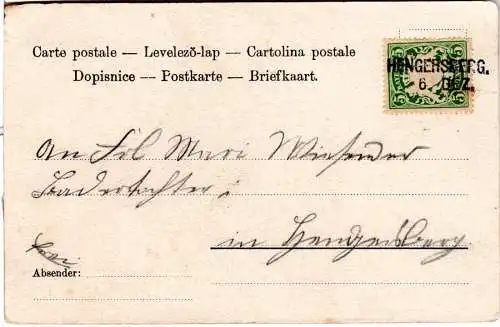 Carte postale — Levelező-lap — Cartolina postale
Dopisnice — Postkarte — Briefkaart.
5 5
HENGERSBERG.
6. DEZ.
5 5
An Frl Mari Wieseder
Badertochter
in Hengersberg
Absender: